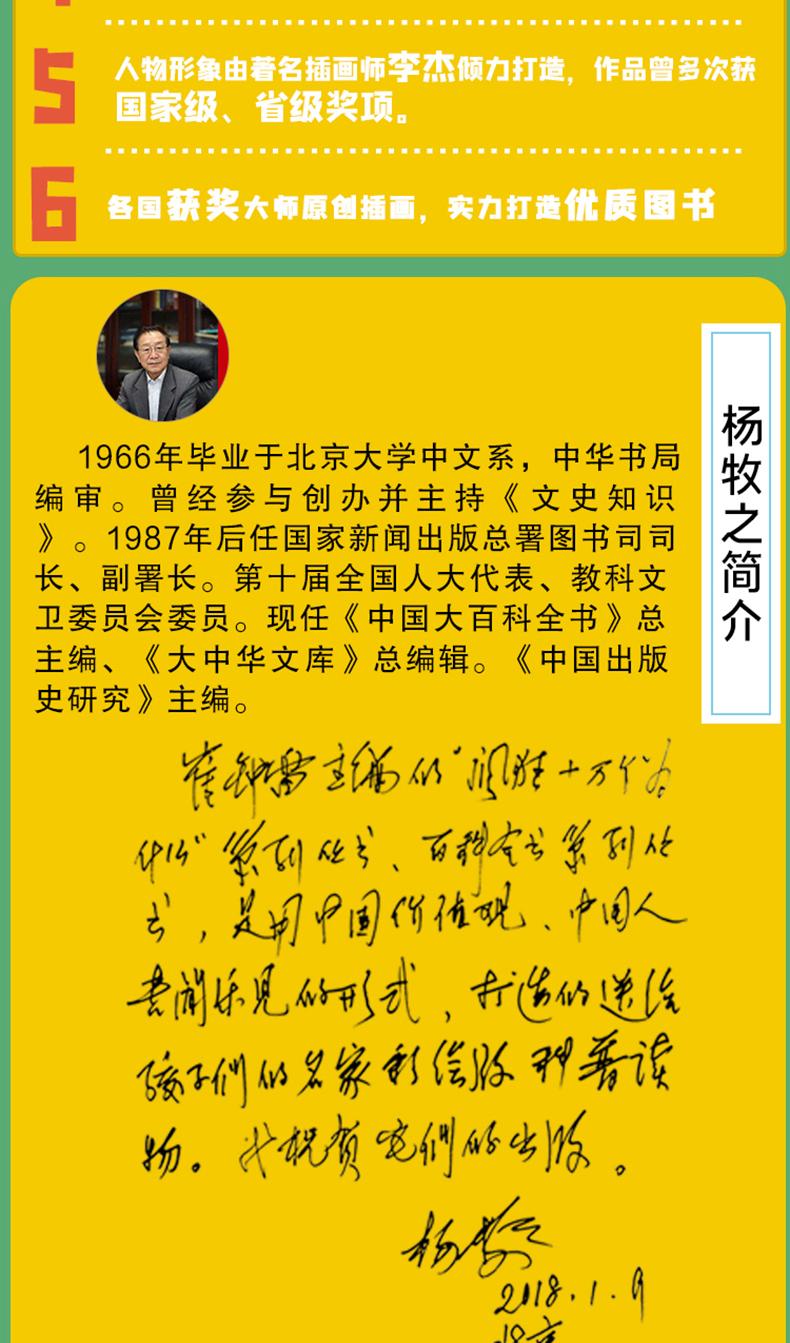 5
人物形象由著名插画师李杰倾力打造，作品曾多次获
国家级、省级奖项。
6
各国获奖大师原创插画，实力打造优质图书
杨牧之简介
1966年毕业于北京大学中文系，中华书局
编审。曾经参与创办并主持《文史知识
》。1987年后任国家新闻出版总署图书司司
长、副署长。第十届全国人大代表、教科文
卫委员会委员。现任《中国大百科全书》总
主编、《大中华文库》总编辑。《中国出版
史研究》主编。
崔钟雷主编的“疯狂十万个为
什么”系列丛书、百科全书系列丛
书，是用中国价值观、中国人
喜闻乐见的形式，打造的送给
孩子们的名家彩绘版科普读
物。我祝贺它们的出版。
杨牧之
2018.1.9